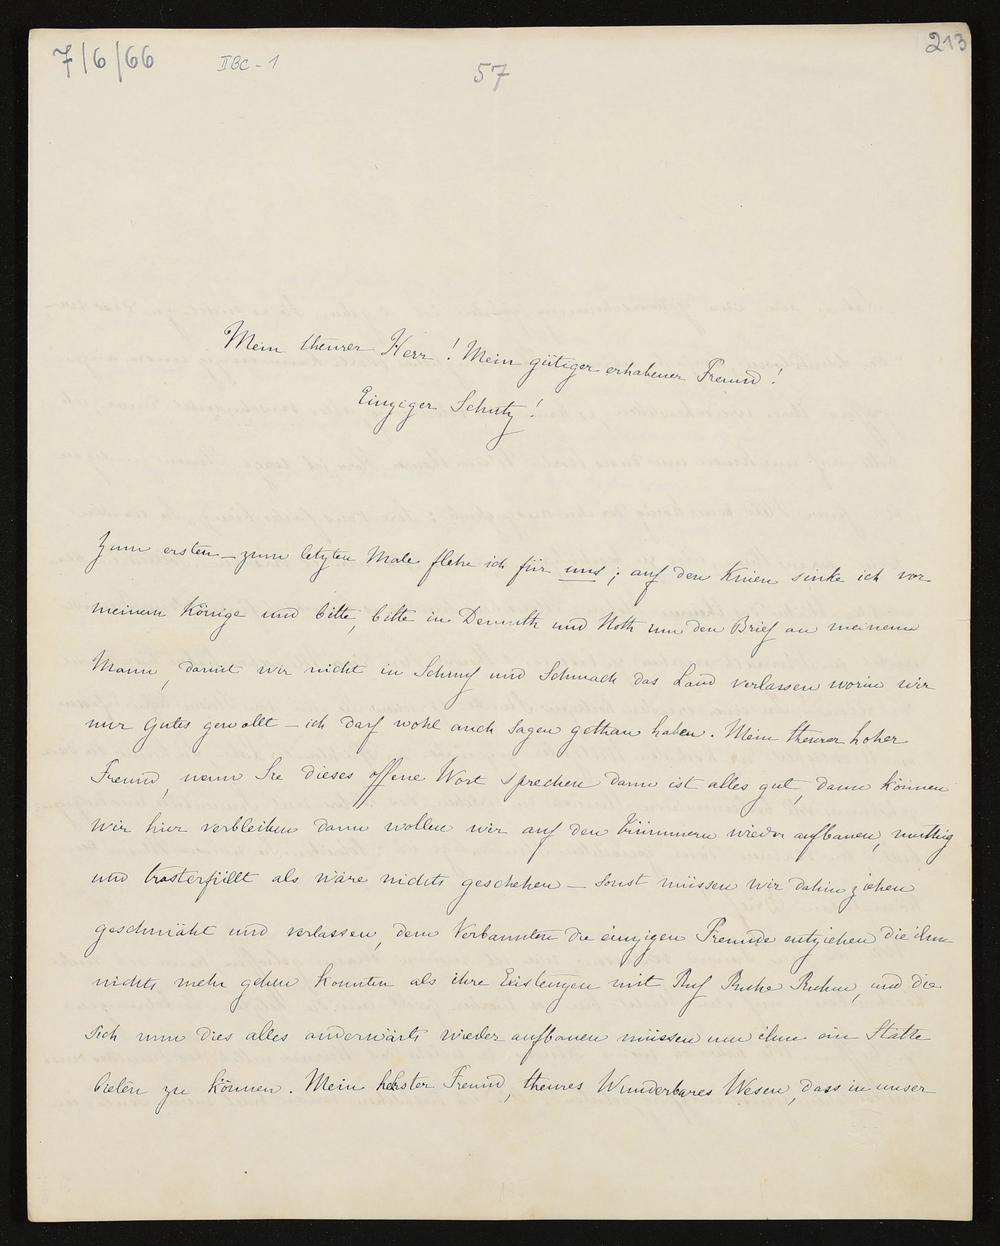 7/6/66 II Bc-1 57 213
Mein theurer Herr! Mein gütiger erhabener Freund!
Einziger Schutz!
Zum ersten – zum letzten Male flehe ich für uns; auf den Knien sinke ich vor
meinem Könige und bitte, bitte in Demuth und Noth um den Brief an meinem
Mann, damit wir nicht in Schmuf und Schmach das Land verlassen worin wir
nur Gutes gewollt – ich darf wohl auch sagen gethan haben. Mein theurer hoher
Freund, wenn Sie dieses offene Wort sprechen dann ist alles gut, dann können
wir hier verbleiben dann wollen wir auf den Trümmern wieder aufbauen, muthig
und trosterfüllt als wäre nichts geschehen – sonst müssen wir dahin ziehen
geschmäht und verlassen, dem Verbannten die einzigen Freunde entziehen die ihm
nichts mehr geben konnten als ihre Existenzen mit Ruf Ruhe Ruhm, und die
sich nun dies alles anderwärts wieder aufbauen müssen um ihm ein Stätte
bieten zu können. Mein hehrster Freund, theures Wunderbares Wesen, dass in unser